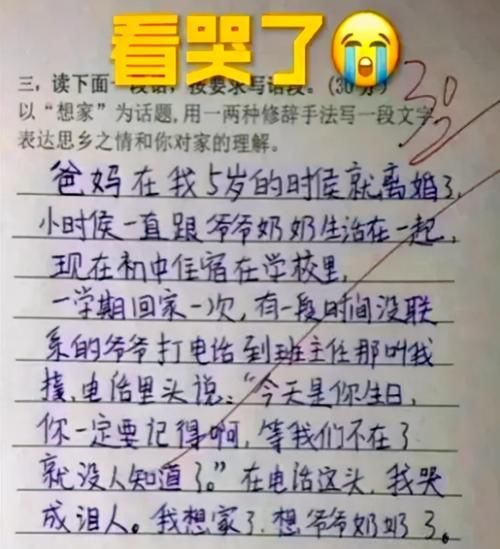 看哭了😭
三，读下面一段话，按要求写话段。(30分)
以“想家”为话题,用一两种修辞手法写一段文字
表达思乡之情和你对家的理解。
爸妈在我5岁的时候就离婚了,
小时候一直跟爷爷奶奶生活在一起,
现在初中住宿在学校里,
一学期回家一次,有一段时间没联
系的爷爷打电话到班主任那叫我
接,电话里头说:“今天是你生日,
你一定要记得啊,等我们不在了
就没人知道了。”在电话这头,我哭
成泪人。我想家了,想爷爷奶奶了。